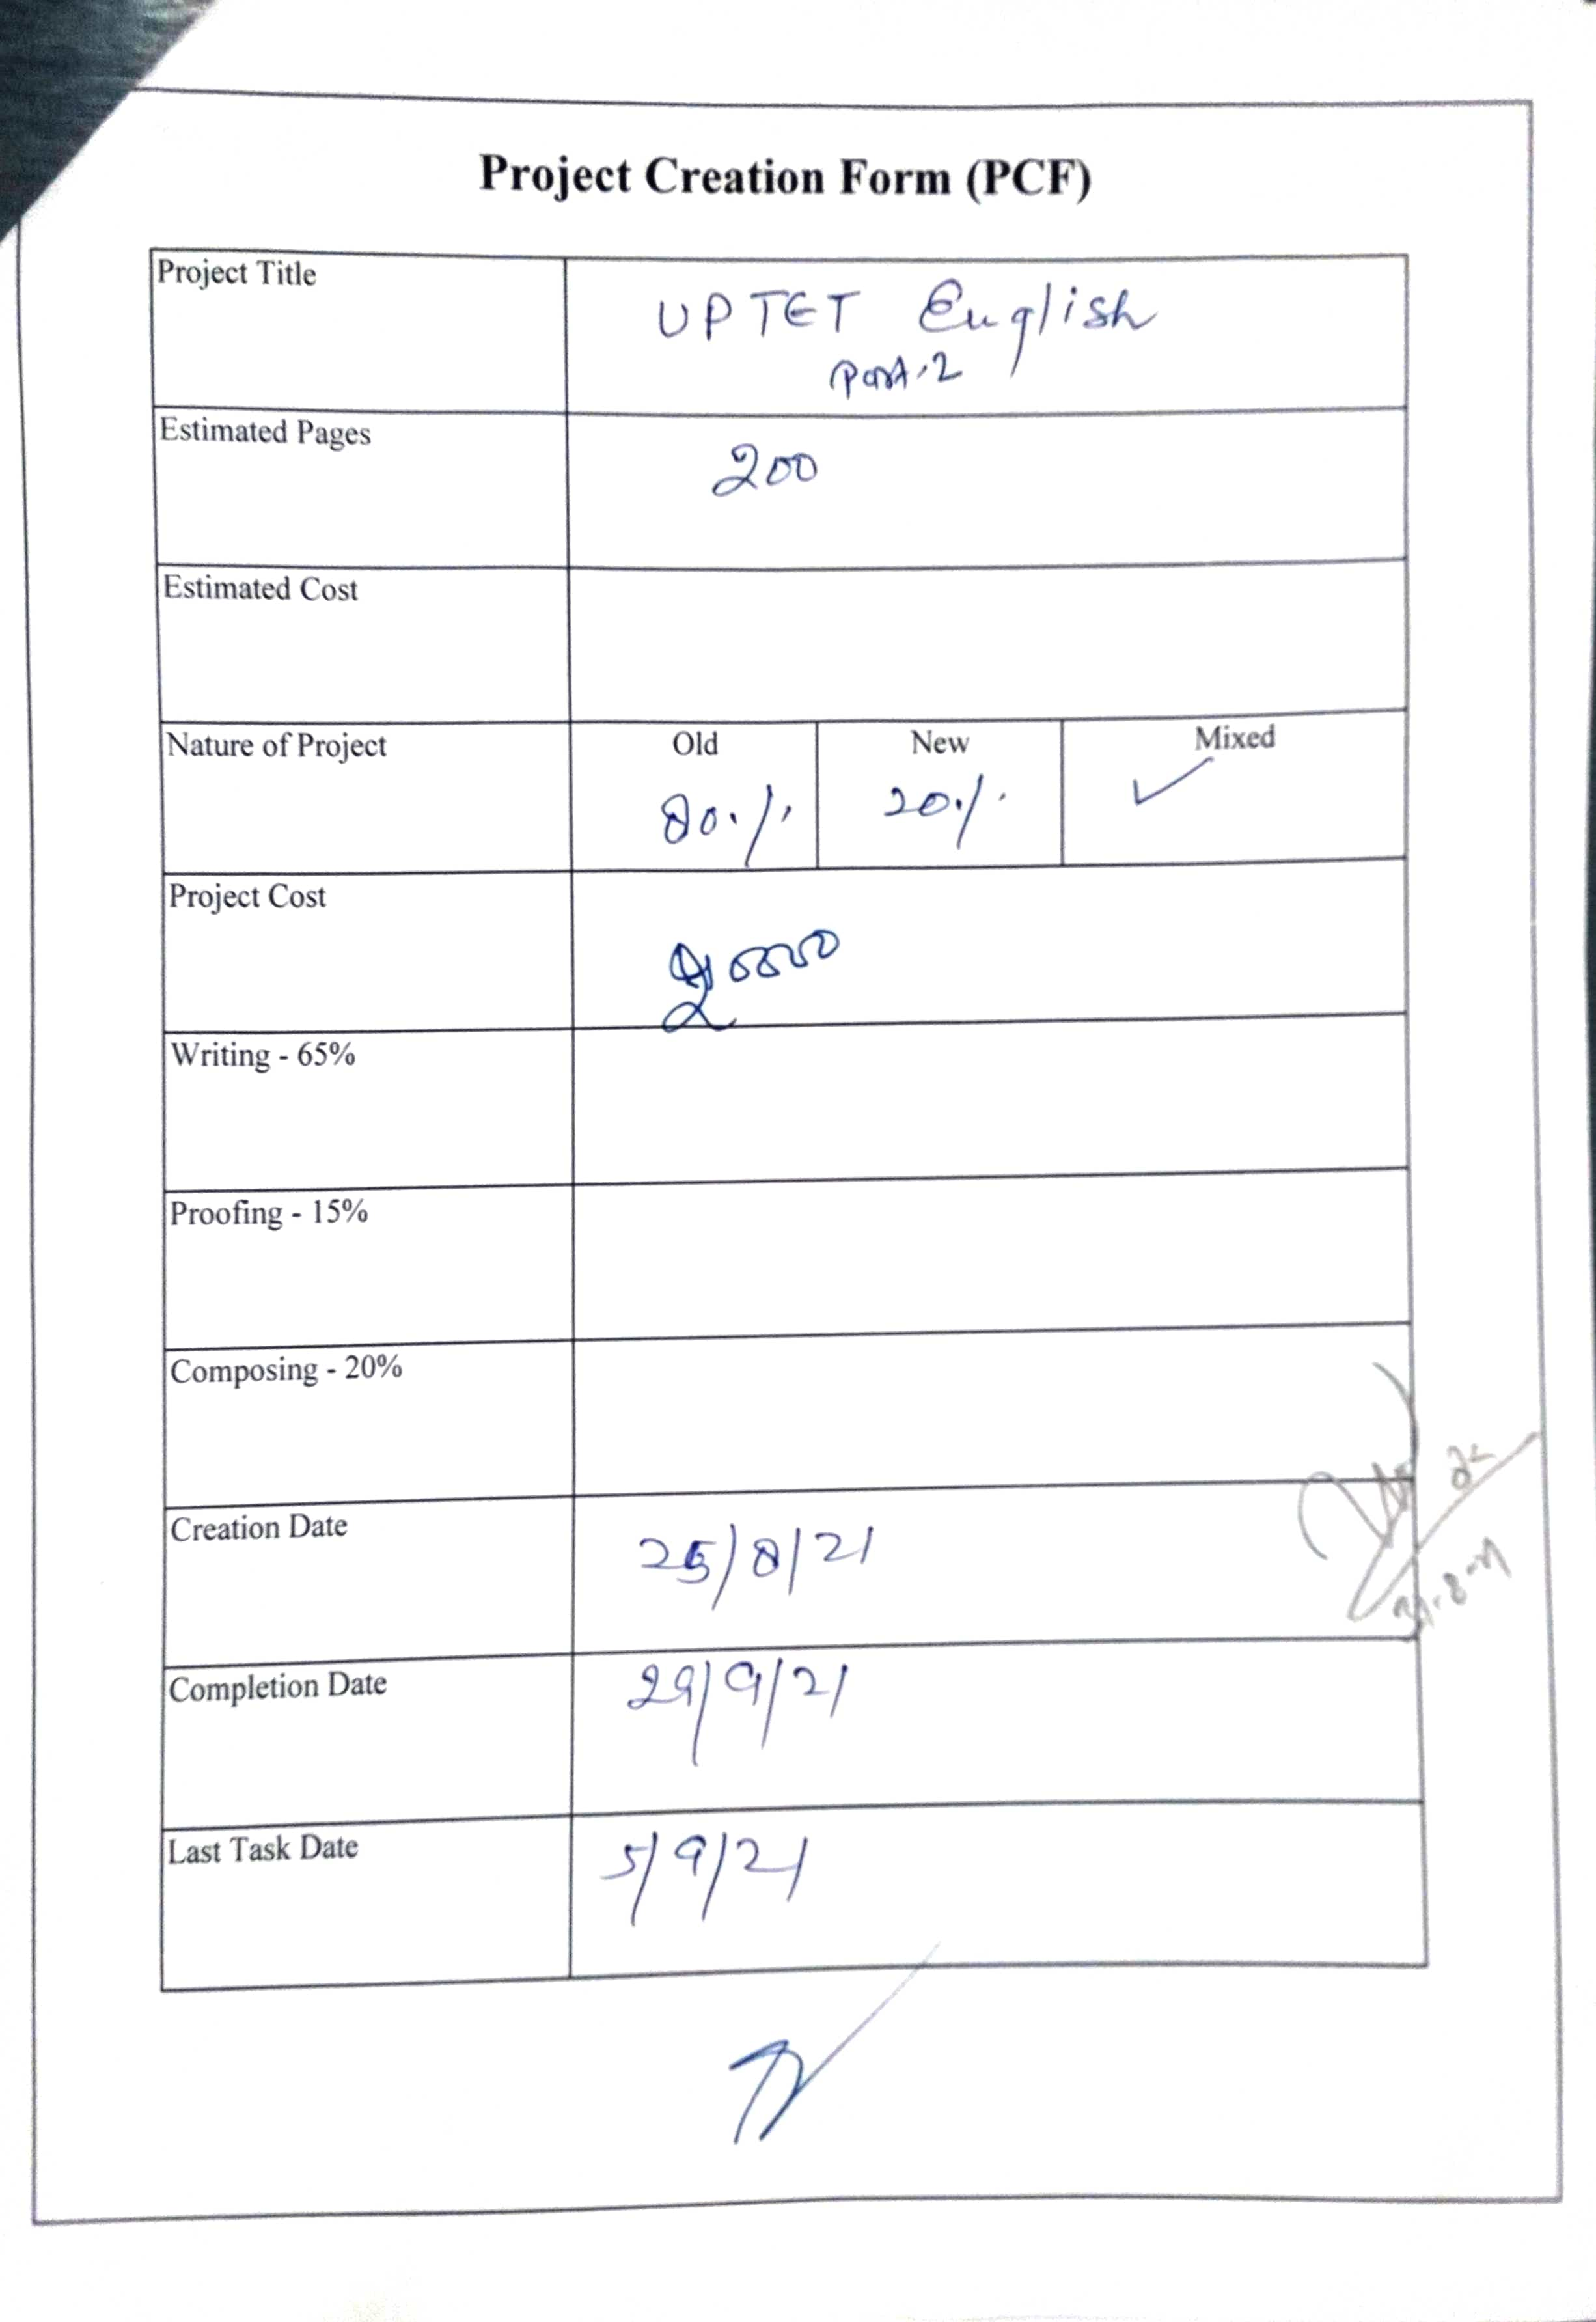 Project Creation Form (PCF)
Project Title
UPTET English
Part-2
Estimated Pages
200
Estimated Cost
Nature of Project
Old
New
Mixed
80%
20%
✓
Project Cost
Writing - 65%
Proofing - 15%
Composing - 20%
Creation Date
25/8/21
Completion Date
29/9/21
Last Task Date
5/9/21